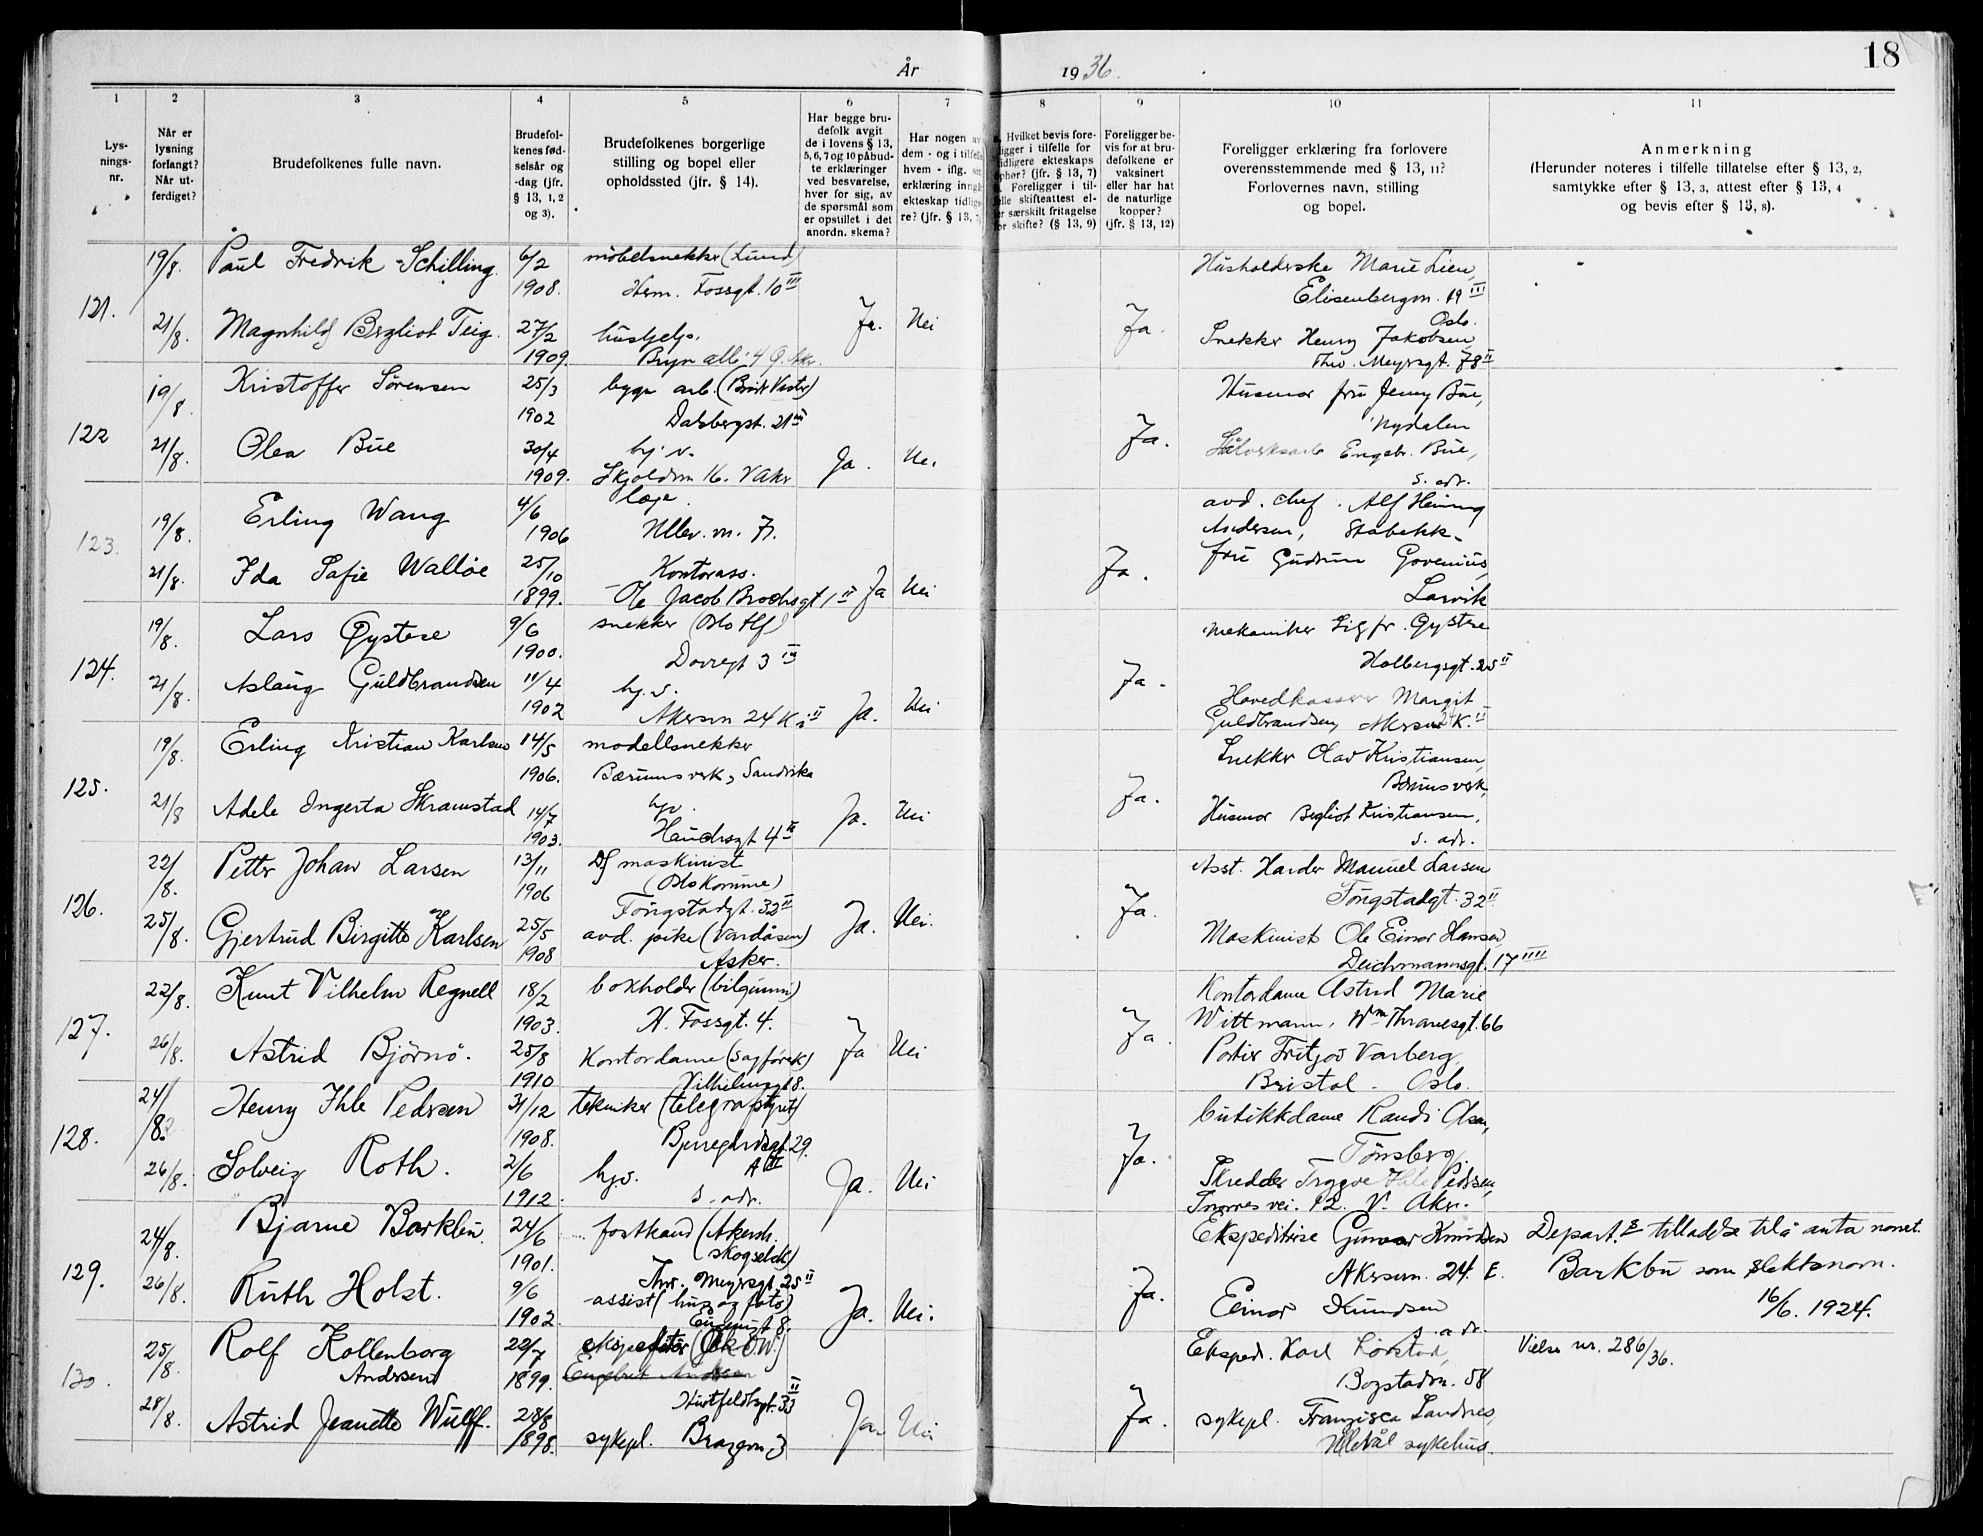 År 1936.
18
1 2 3 4 5 6 7 8 9 10 11
Lys-
nings-
nr.
Når er
lysning
forlangt?
Når ut-
ferdiget?
Brudefolkenes fulle navn.
Brudefol-
kenes fød-
selsår og
-dag (jfr.
§ 13, 1, 2
og 3).
Brudefolkenes borgerlige
stilling og bopel eller
opholdssted (jfr. § 14).
Har begge bru-
defolk avgit
de i lovens § 13,
5, 6, 7 og 10 påbud-
te erklæringer
ved besvarelse,
hver for sig, av
de spørsmål som
er opstillet i det
anordn. skema?
Har nogen av
dem - og i tilfelle
hvem - iflg. sin
erklæring inngå
ekteskap tidlige-
re? (jfr. § 13, 7
Hvilket bevis fore-
ligger i tilfelle for
tidligere ekteskaps
ophør? (jfr. § 13, 7)
Foreligger i til-
felle skifteattest el-
er særskilt fritagelse
for skifte? (§ 13, 9)
Foreligger be-
vis for at bru-
defolkene er
vaksinert
eller har hat
de naturlige
kopper?
(jfr. § 13, 12)
Foreligger erklæring fra forlovere
overensstemmende med § 13, 11?
Forlovernes navn, stilling
og bopel.
Anmerkning
(Herunder noteres i tilfelle tillatelse efter § 13, 2,
samtykke efter § 13, 3, attest efter § 13, 4
og bevis efter § 13, 8).
121.
19/8. Paul Fredrik Schilling 6/2 1908. møbelsnekker (Lund)
Herm. Fossgt. 10 III
21/8. Magnhild Bergliot Teig. 27/2 1909. hushjelp.
Bryn allé 4 Ø. Akr. Ja. Nei
Ja. Husholderske Marie Lien,
Elisenbergvn. 19 III
Oslo.
Snekker Henry Jakobsen,
Thv. Meyersgt. 78 II
122
19/8. Kristoffer Sørensen 25/3 1902 bygn arb.
Dalsbergst. 21 III
21/8. Olea Bue 30/4 1909. hj. v.
Skjoldvn 16. V Akr Ja. Nei
Ja. Husmor fru Jenny Bue,
Nydalen
Engebr. Bue,
s. adr.
123.
19/8. Erling Wang 4/6 1906 læge.
Ullev. vn. 7.
21/8. Ida Sofie Walløe 25/10 1899. Kontorass.
Ole Jacob Brochsgt 1 II Ja Nei
Ja. avd. chef. Alf Henning
Andersen, Stabekk.
fru Gudrun Govenius,
Larvik
124.
19/8. Lars Øystese 9/6 1900. snekker (Oslo Hf)
Dovregt 3 IV
21/8. Aslaug Guldbrandsen 11/4 1902 hj. v.
Akersvn 24 K II Ja. Nei
Ja. Mekaniker Sigfr. Øystese
Holbergsgt. 25 II
Hovedkasserer Margit
Guldbrandsen, Akersvn 24 K. II
125.
19/8. Erling Kristian Karlsen 14/5 1906. modellsnekker
Bærumsverk, Sandvika
21/8 Adele Ingerta Skramstad 14/7 1903. hjv.
Hauchsgt 4 II Ja. Nei
Ja. Snekker Olav Kristiansen,
Bærumsverk,
Husmor Bergliot Kristiansen,
s. adr.
126.
22/8. Petter Johan Larsen 13/11 1906 maskinist
(Oslo Komune)
Tougstadgt. 32 II
25/8. Gjertrud Birgitte Karlsen 25/5 1908 avd. pike (Vardåsen)
Asker. Ja. Nei.
Ja. Asst. Harder Manuel Larsen
Tougstadgt. 32 II
Maskinist Ole Einar Hansen
Deichmannsgt. 17 IIII
127.
22/8. Knut Vilhelm Regnell 18/2 1903. bokholder (bilgummi)
H. Fossgt. 4.
26/8. Astrid Bjørnø. 25/8 1910 Kontordame (sagførerk)
Vilhelmsgt 8. Ja Nei
Ja. Kontordame Astrid Marie
Wittmann, Wm Thranesgt. 66
Portier Fritjov Varberg,
Bristol - Oslo.
128.
24/8. Henry Ihle Pedersen 31/12 1908. tekniker (telegrafstyret)
Bjerregårdsgt. 29.
A II
26/8. Solveig Roth. 2/6 1912. hj.v.
s. adr. Ja. Nei
Ja. butikkdame Randi Olsen,
Tønsberg.
Skredder Trygve Ihle Pedersen,
vei. 12. V. Aker.
129.
24/8. Bjarne Barkbu. 24/6 1901. forstkand (Akersh.
skogselsk)
Thv. Meyersgt. 25 II
26/8. Ruth Holst. 9/6 1902. assist (hus og foto)
8. Ja. Nei.
Ja. Ekspeditrise Gunvor Knudsen
Akersvn. 24. E.
Einar Knudsen
s adr.
Depart. E tilladelse til å anta navnet
Barkbu som slektsnavn.
16/6. 1924.
130.
25/8. Rolf Kollenborg
Andersen 22/7 1899. ekspeditør
Hustfeldtsgt. 33 II
28/8. Astrid Jeanette Wulff. 28/8 1898. sykepl. Ja Nei
Ja. Eksped. Karl Lørstad,
Bogstadvn. 58
sykepl. Franzisca Sandnes,
Ullevål sykehus.
Vielse nr. 286/36.